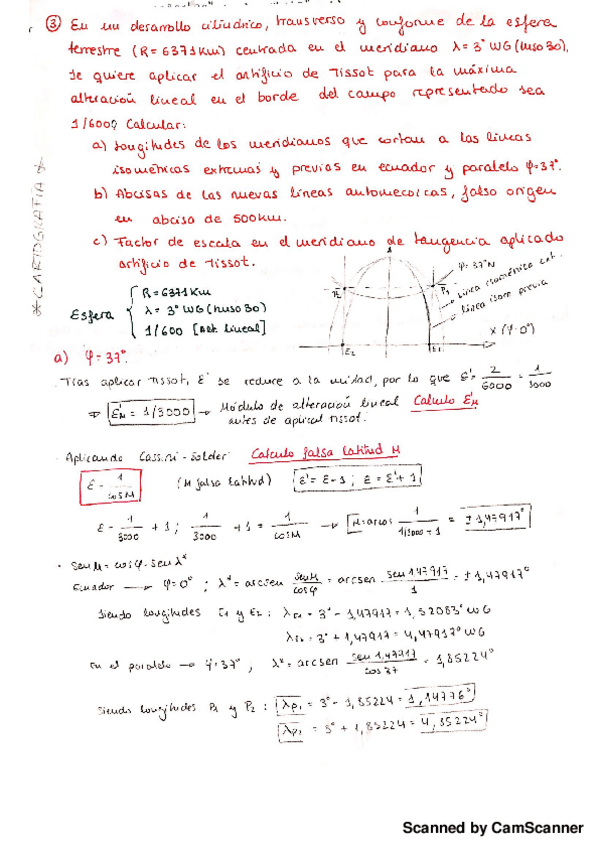 ③ En un desarrollo cilíndrico, transverso y conforme de la esfera
terrestre (R= 6371Km) centrada en el meridiano λ= 3° WG (huso 30),
se quiere aplicar el artificio de Tissot para la máxima
alteración lineal en el borde del campo representado sea
1/6000 Calcular:
a) Longitudes de los meridianos que cortan a las líneas
isométricas extremas y previas en ecuador y paralelo φ=37°.
b) Abcisas de las nuevas líneas automecoicas, falso origen
en abcisa de 500km.
c) Factor de escala en el meridiano de tangencia aplicado
artificio de Tissot.
*CARTOGRAFIA*
Esfera
R=6371Km
λ= 3° WG (huso 30)
1/600 [Alt lineal]
φ= 37°N
P2
P1
Línea isométrica ext.
línea isom previa
E2
X (φ=0°)
a) φ=37°.
Tras aplicar Tissot, ε' se reduce a la mitad, por lo que ε'= 2/6000 = 1/3000
⇒ ε'M = 1/3000 → Módulo de alteración lineal Calculo ε'M
antes de aplicar Tissot.
· Aplicando Cassini-Solder Calculo falsa latitud M
ε = 1/cosM (M falsa latitud) ε'= ε-1 ; ε = ε'+1
ε = 1/3000 + 1 ; 1/3000 + 1 = 1/cosM → M=arcos 1/(1/3000+1) = ±1,47917°
· senM= cosφ·senλ*
Ecuador → φ=0° ; λ*= arcsen senM/cosφ = arcsen sen1,47917/1 = ±1,47917°
Siendo longitudes E1 y E2: λE1 = 3° - 1,47917 = 1,52083° WG
λE2 = 3° + 1,47917 = 4,47917° WG
En el paralelo → φ=37° , λ*= arcsen sen1,47917/cos37 = 1,85224°
Siendo longitudes P1 y P2 : λP1 = 3° - 1,85224 = 1,14776°
λP1 = 3° + 1,85224 = 4,85224°
Scanned by CamScanner